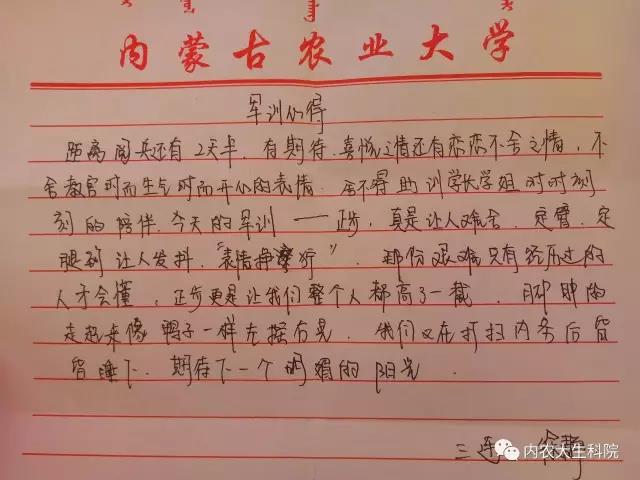 内蒙古农业大学
军训心得
距离阅兵还有2天半，有期待、喜悦之情还有恋恋不舍之情，不
舍教官时而生气时而开心的表情，舍不得助训学长学姐时时刻
刻的陪伴，今天的军训——正步，真是让人难舍，定臂，定
腿到让人发抖，“表情狰狞”，那份艰难只有经历过的
人才会懂，正步更是让我们整个人都高了一截，脚肿的
走起来像鸭子一样左摇右晃，我们又在打扫内务后皆
皆睡下，期待下一个明媚的阳光．
三连
内农大生科院